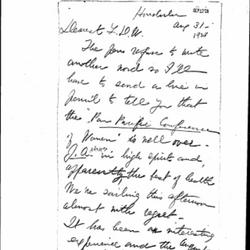 Honolulu
Aug 31 -
1928
Dearest L.D.W.
The pen refuses to write
another word so I'll
have to send a line in
pencil to tell you that
the "Pan Pacific Conference
of Women" is well over.
J.A. is in high spirits and,
apparently the best of health
We're sailing this afternoon
almost with regret.
It has been an interesting
experience and the